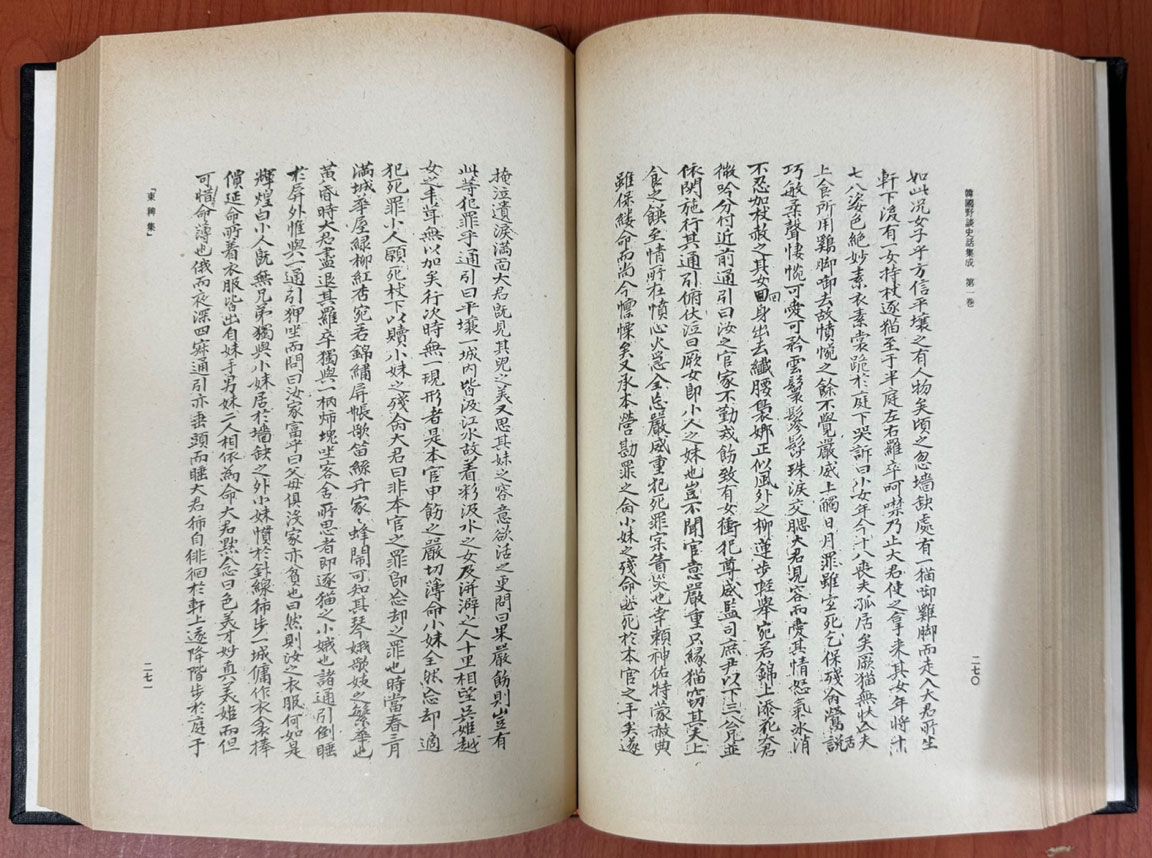 韓國野談史話集成 第一卷
如此况女子乎方信平壤之有人物矣頃之忽墻缺處有一猫啣雞脚而走入大君所坐
軒下後有一女持杖逐猫至于半庭左右羅卒呵噤乃止大君使之拿来其女年將十
七八姿色絶妙素衣素裳跪於庭下哭訴曰小女年今十八喪夫孤居矣厥猫無狀亡夫
上食所用鷄脚啣去故憤惋之餘不覺嚴威上觸日月罪雖當死乞保殘命鶯說舌
巧敏柔聲悽惋可愛可矜雲鬟鬅髩珠淚交腮大君見容而愛其情怒氣氷消
不忍加杖赦之其女回身出去纖腰裊娜正似風外之柳蓮步輕擧宛若錦上添花大君
微吟分付近前通引曰汝之官家不勤戒飭致有女衝犯尊威監司庶尹以下三公兄並
依関施行其通引俯伏泣曰厥女即小人之妹也豈不聞官意嚴重只緣猫窃其夫上
食之饌至情所在憤心火急全忘嚴威重犯死罪宗責灾也幸賴神佑特蒙赦典
雖保縷命而尚今懔慄矣又承本營勘罪之命小妹之殘命必死於本官之手矣遂
二七〇
掩泣遺淚滿面大君旣見其兒之美又思其妹之容意欲活之更問曰果嚴飭則豈有
此等犯罪乎通引曰平壤一城内皆汲江水故着彩汲水之女及洴澼之人十里相望吳姬越
女之丰茸無以加矣行次時無一現形者是本官申飭之嚴切薄命小妹全然忘却適
犯死罪小人願死杖下以贖小妹之殘命大君曰非本官之罪卽忘却之罪也時當春三月
滿城華屋綠柳紅杏宛若錦繡屏帳歌笛絲升家〻蜂鬧可知其琴娥歌妓之繁華也
黃昏時大君盡退其羅卒獨與一柄燭塊坐客舍所思者即逐猫之小娥也諸通引倒睡
於屏外惟與一通引狎坐而問曰汝家富乎曰父母俱没家亦貧也曰然則汝之衣服何如是
輝煌曰小人旣無兄弟獨與小妹居於墻缺之外小妹慣於針線獨步一城傭作衣食捧
價延命所着衣服皆出自妹手男妹二人相依為命大君點〻念曰色美才妙真美姬而但
可惜命薄也俄而夜深四寂通引亦垂頭而睡大君獨自徘徊於軒上逐降階步於庭于
二七一
『東稗集』